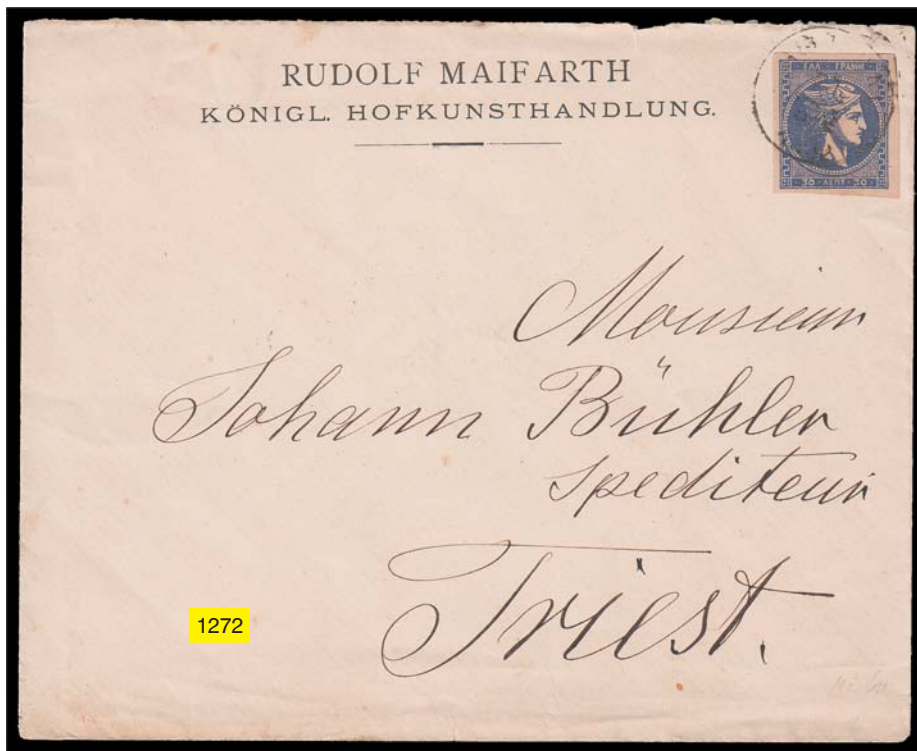 RUDOLF MAIFARTH
KÖNIGL. HOFKUNSTHANDLUNG.
ΕΛΛ ΓΡΑΜΜ
30 ΛΕΠΤ 30
Monsieur
Johann Bühler
Spediteur
Triest.
1272